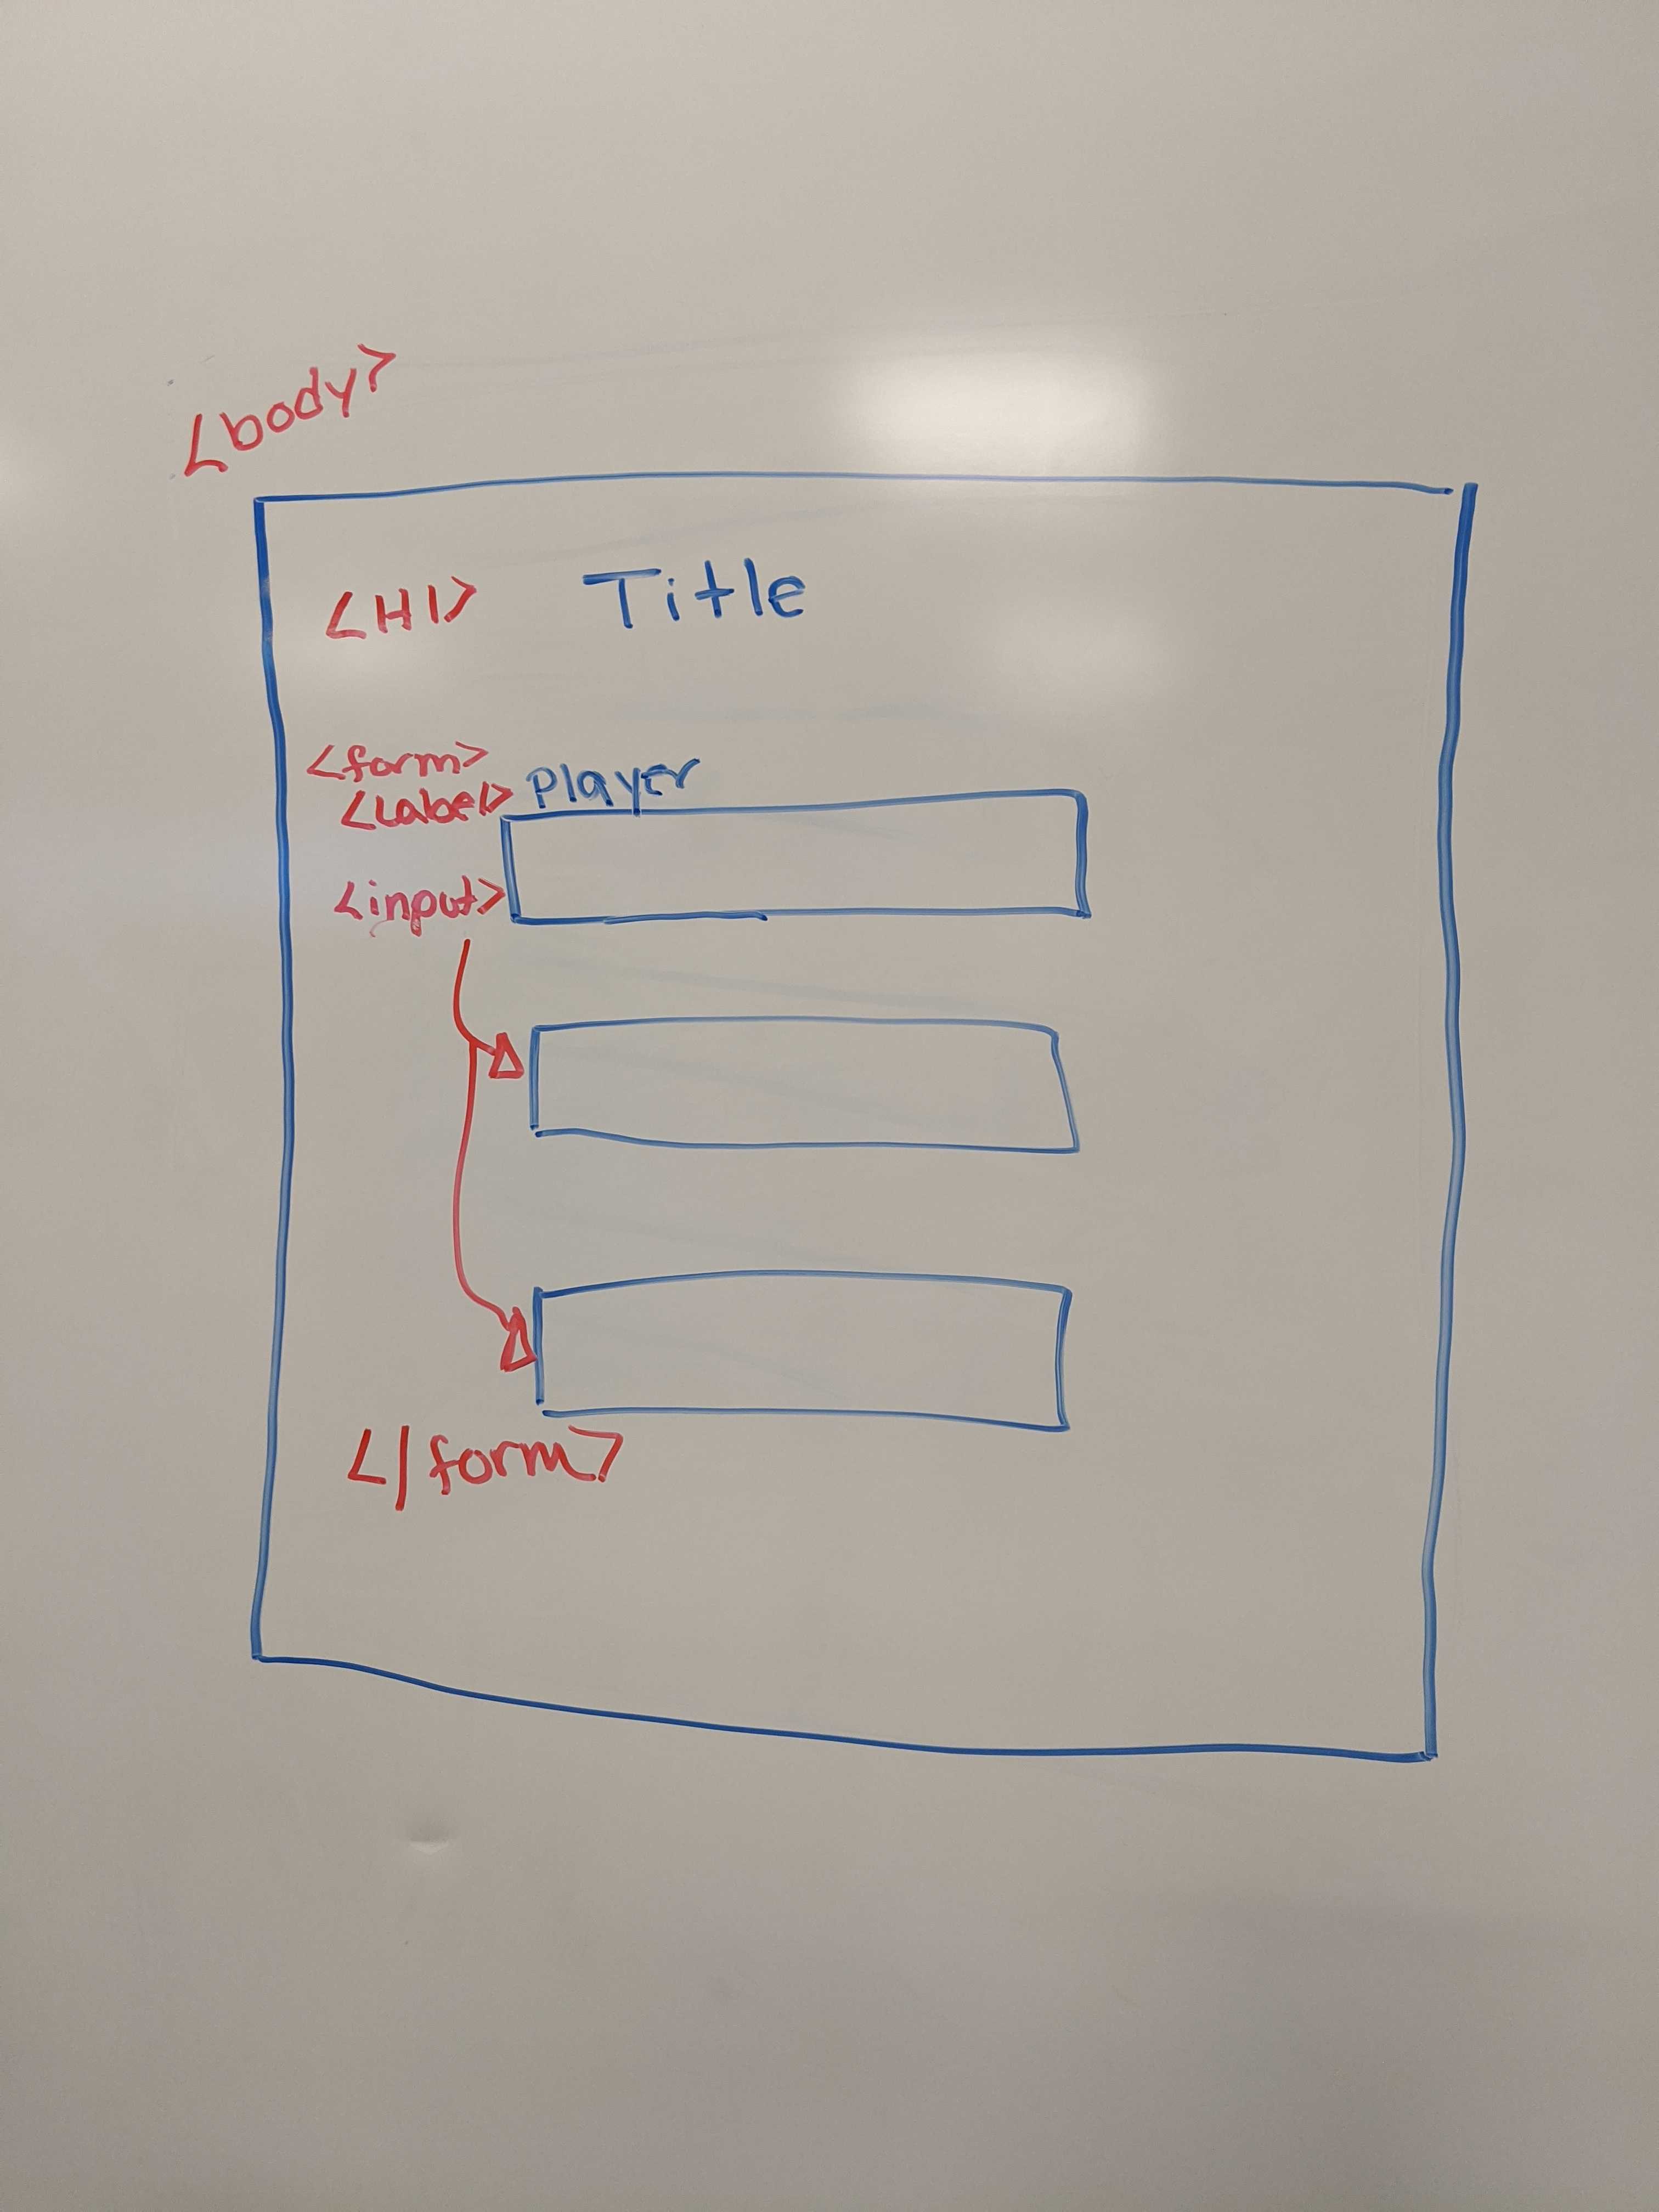 <body>
<H1> Title
<form>
<Label> Player
<input>
</form>